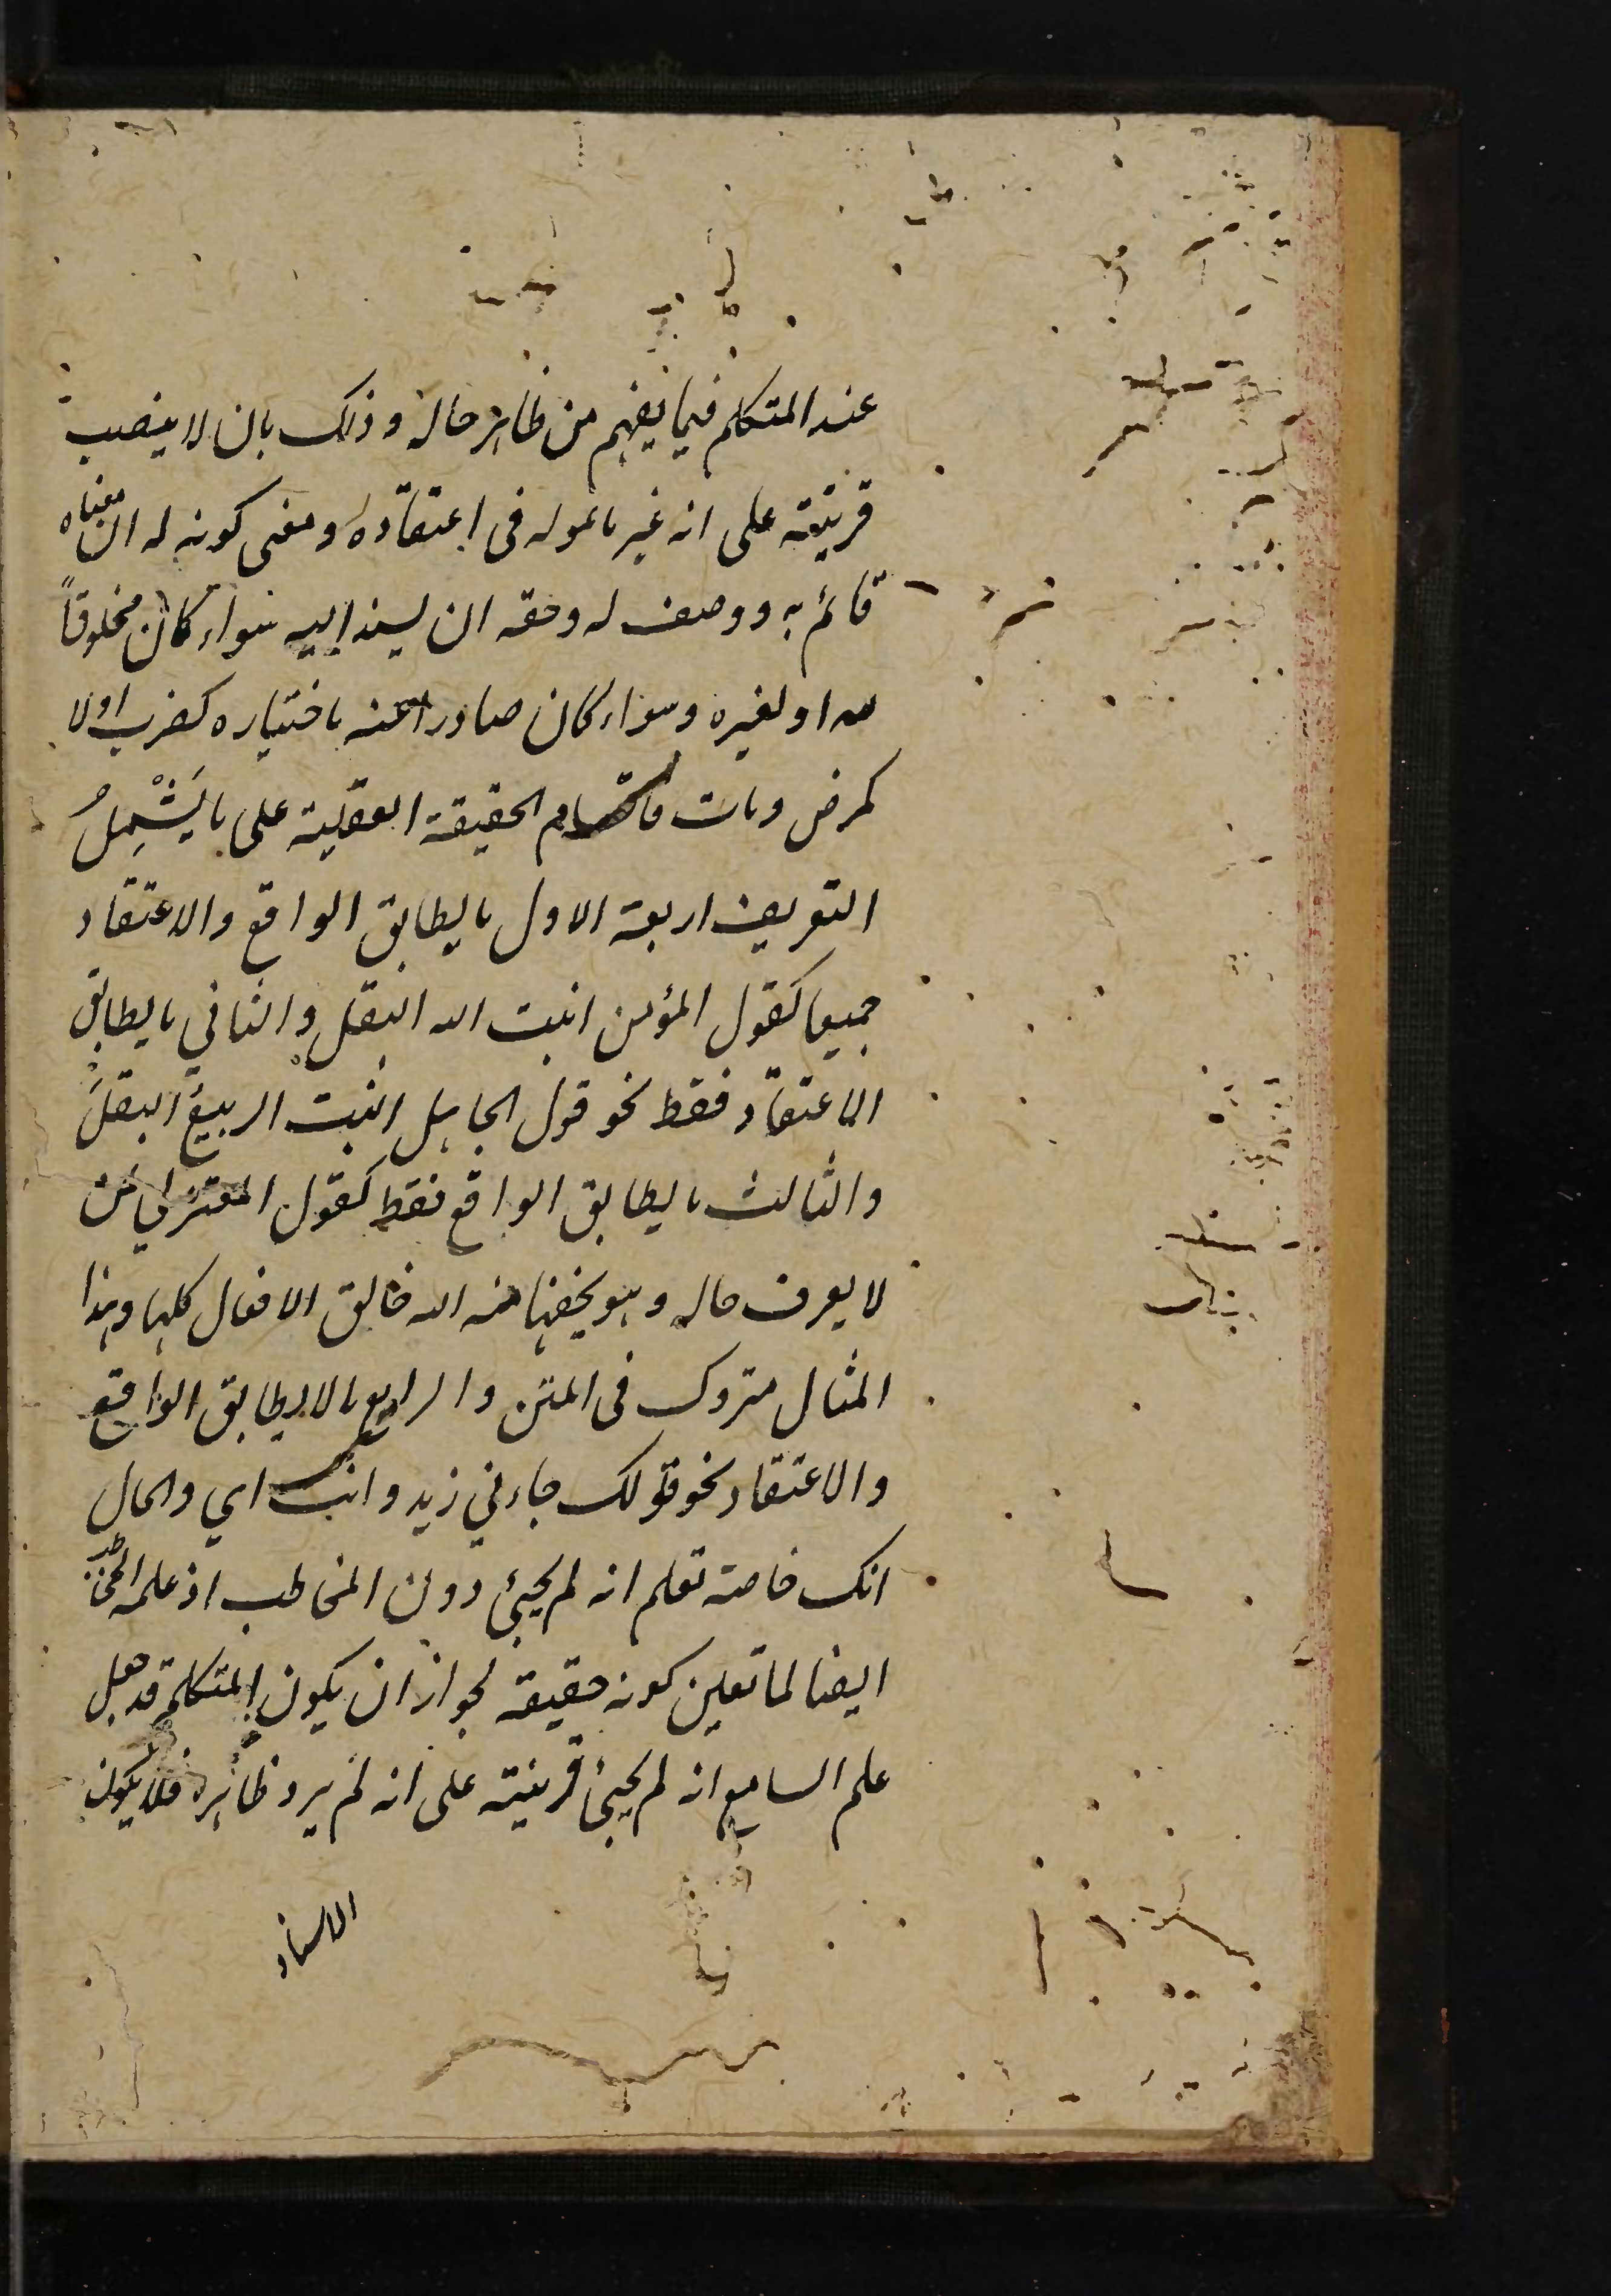 عند المتكلم فيما يفهم من ظاهر حاله وذلك بان لا ينصب
قرينة على انه غير ما هو له فى اعتقاده ومعنى كونه له ان معناه
قائم به ووصف له وحقه ان يسند اليه سواء كان مخلوقاً
لله او لغيره وسواء كان صادرا عنه باختياره كضرب اولا
كمرض ومات فاقسام الحقيقة العقلية على ما يَشْمِلُ
التعريف اربعة الاول ما يطابق الواقع والاعتقاد
جميعا كقول المؤمن انبت الله البقل والثاني ما يطابق
الاعتقاد فقط نحو قول الجاهل انبت الربيعُ البقلَ
والثالث ما يطابق الواقع فقط كقول المعتزلي لمن
لا يعرف حاله وهو يخفيها منه الله خالق الافعال كلها وهذا
المثال متروك فى المتن والرابع ما لا يطابق الواقع
والاعتقاد نحو قولك جاءني زيد وانت اي والحال
انك خاصة تعلم انه لم يجئ دون المخاطب اذ علمه المخاطب
ايضا لما تعين كونه حقيقة لجواز ان يكون المتكلم قد جعل
علم السامع انه لم يجئ قرينة على انه لم يرد ظاهره فلا يكون
الاسناد